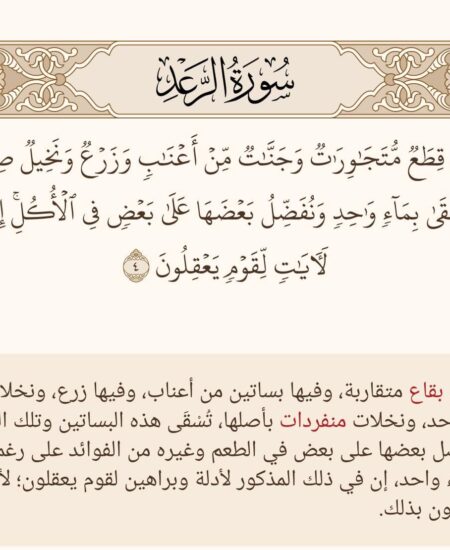 سُورَةُ الرَّعۡدِ
قِطَعٞ مُّتَجَٰوِرَٰتٞ وَجَنَّٰتٞ مِّنۡ أَعۡنَٰبٖ وَزَرۡعٞ وَنَخِيلٞ
بِمَآءٖ وَٰحِدٖ وَنُفَضِّلُ بَعۡضَهَا عَلَىٰ بَعۡضٖ فِي ٱلۡأُكُلِۚ
لَأٓيَٰتٖ لِّقَوۡمٖ يَعۡقِلُونَ ٤
بقاع متقاربة، وفيها بساتين من أعناب، وفيها زرع، ونخلا
حد، ونخلات منفردات بأصلها، تُسْقَى هذه البساتين وتلك
بعضها على بعض في الطعم وغيره من الفوائد على رغم
واحد، إن في ذلك المذكور لأدلة وبراهين لقوم يعقلون؛
ون بذلك.